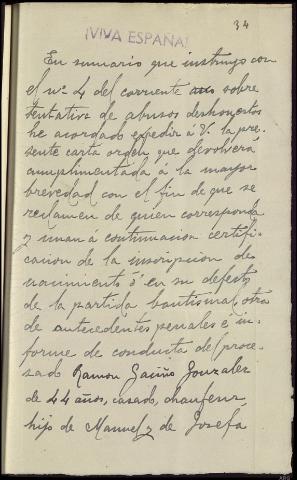 34
¡VIVA ESPAÑA!
En sumario que instruyo con
el nº 4 del corriente año sobre
tentativa de abusos deshonestos
he acordado expedir á V. la pre-
sente carta orden que devolverá
cumplimentada á la mayor
brevedad con el fin de que se
reclamen de quien corresponda
y unan á continuación certifi-
cación de la inscripción de
nacimiento ó en su defecto
de la partida bautismal, otra
de antecedentes penales é in-
forme de conducta del proce-
sado Ramon Gonzalez
de 44 años, casado, chauffeur
hijo de Manuel y de Josefa